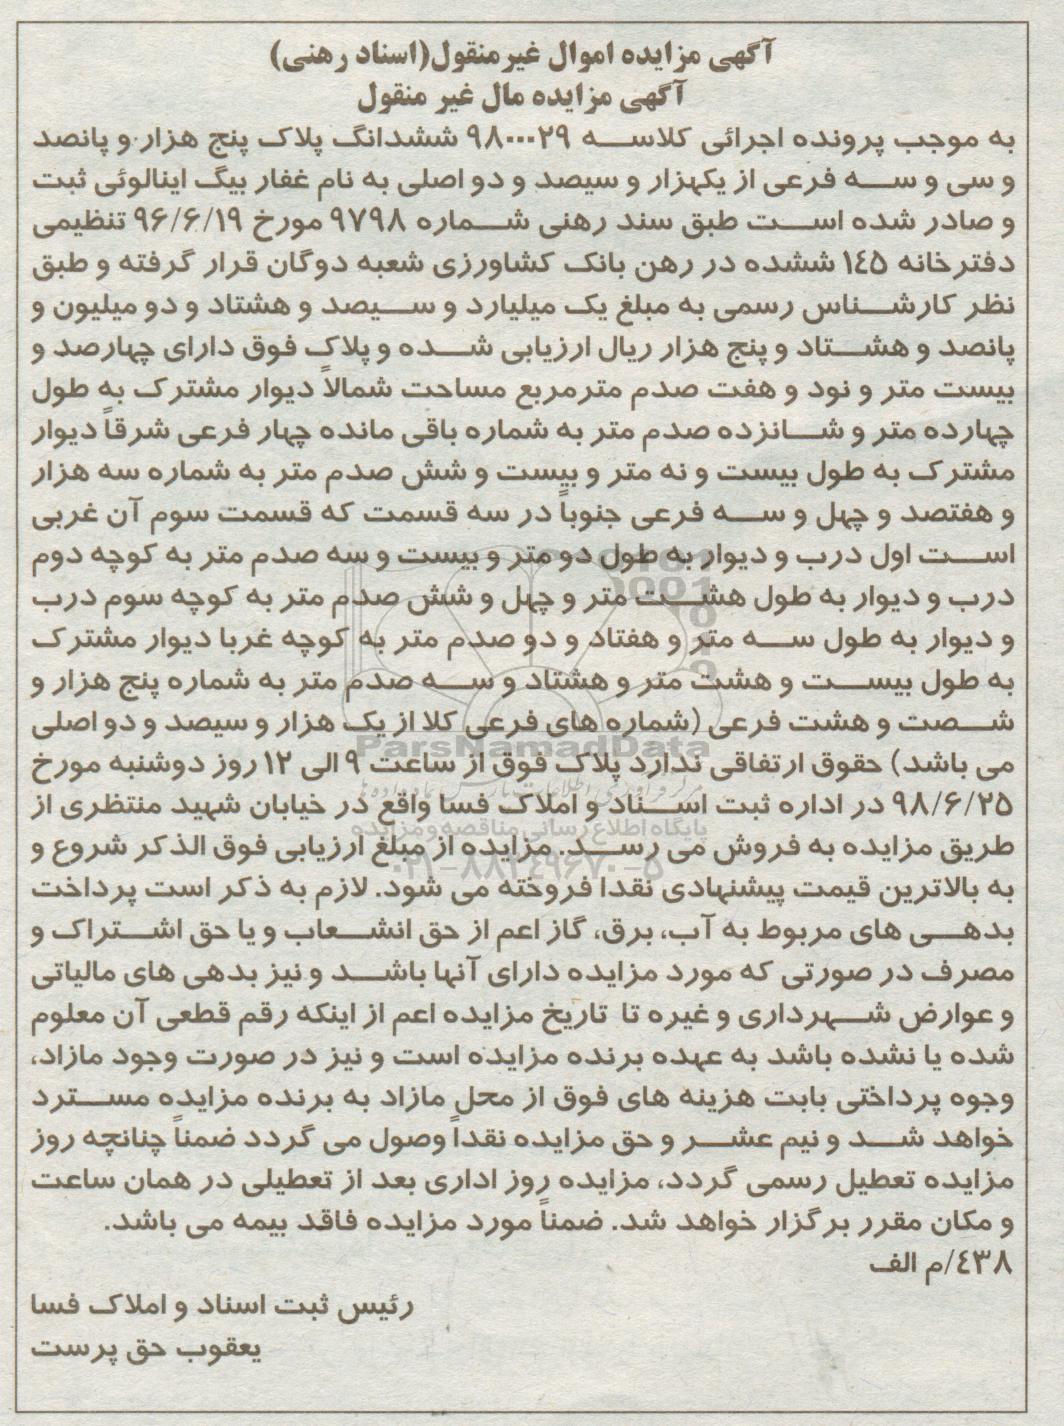 آگهی مزایده اموال غیرمنقول(اسناد رهنی)
آگهی مزایده مال غیر منقول
به موجب پرونده اجرائی کلاسه ۹۸۰۰۰۲۹ ششدانگ پلاک پنج هزار و پانصد
و سی و سه فرعی از یکهزار و سیصد و دو اصلی به نام غفار بیگ اینالوئی ثبت
و صادر شده است طبق سند رهنی شماره ۹۷۹۸ مورخ ۹۶/۶/۱۹ تنظیمی
دفترخانه ۱۴۵ ششده در رهن بانک کشاورزی شعبه دوگان قرار گرفته و طبق
نظر کارشناس رسمی به مبلغ یک میلیارد و سیصد و هشتاد و دو میلیون و
پانصد و هشتاد و پنج هزار ریال ارزیابی شده و پلاک فوق دارای چهارصد و
بیست متر و نود و هفت صدم مترمربع مساحت شمالاً دیوار مشترک به طول
چهارده متر و شانزده صدم متر به شماره باقی مانده چهار فرعی شرقاً دیوار
مشترک به طول بیست و نه متر و بیست و شش صدم متر به شماره سه هزار
و هفتصد و چهل و سه فرعی جنوباً در سه قسمت که قسمت سوم آن غربی
است اول درب و دیوار به طول دو متر و بیست و سه صدم متر به کوچه دوم
درب و دیوار به طول هشت متر و چهل و شش صدم متر به کوچه سوم درب
و دیوار به طول سه متر و هفتاد و دو صدم متر به کوچه غربا دیوار مشترک
به طول بیست و هشت متر و هشتاد و سه صدم متر به شماره پنج هزار و
شصت و هشت فرعی (شماره های فرعی کلا از یک هزار و سیصد و دو اصلی
می باشد) حقوق ارتفاقی ندارد پلاک فوق از ساعت ۹ الی ۱۲ روز دوشنبه مورخ
۹۸/۶/۲۵ در اداره ثبت اسناد و املاک فسا واقع در خیابان شهید منتظری از
طریق مزایده به فروش می رسد. مزایده از مبلغ ارزیابی فوق الذکر شروع و
به بالاترین قیمت پیشنهادی نقدا فروخته می شود. لازم به ذکر است پرداخت
بدهی های مربوط به آب، برق، گاز اعم از حق انشعاب و یا حق اشتراک و
مصرف در صورتی که مورد مزایده دارای آنها باشد و نیز بدهی های مالیاتی
و عوارض شهرداری و غیره تا تاریخ مزایده اعم از اینکه رقم قطعی آن معلوم
شده یا نشده باشد به عهده برنده مزایده است و نیز در صورت وجود مازاد،
وجوه پرداختی بابت هزینه های فوق از محل مازاد به برنده مزایده مسترد
خواهد شد و نیم عشر و حق مزایده نقداً وصول می گردد ضمناً چنانچه روز
مزایده تعطیل رسمی گردد، مزایده روز اداری بعد از تعطیلی در همان ساعت
و مکان مقرر برگزار خواهد شد. ضمناً مورد مزایده فاقد بیمه می باشد.
۴۳۸/م الف
رئیس ثبت اسناد و املاک فسا
یعقوب حق پرست
ParsNamadData
پایگاه اطلاع رسانی مناقصه و مزایده
۰۲۱-۸۸۳۴۹۶۷۰-۵